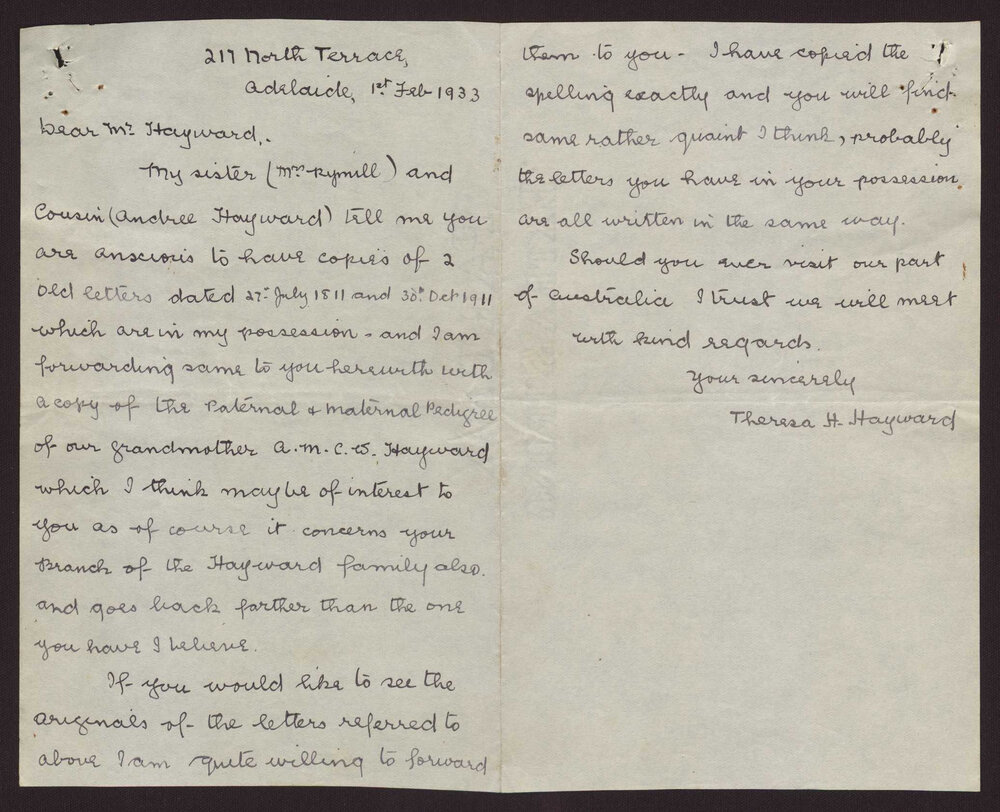 217 North Terrace,
Adelaide, 1st Feb 1933
Dear Mr Hayward,.
My sister (Mrs Rymill) and
Cousin (Andree Hayward) tell me you
are anscious to have copies of 2
old letters dated 27th July 1811 and 30th Oct 1911
which are in my possession - and I am
forwarding same to you herewith with
a copy of the Paternal & Maternal Pedigree
of our grandmother A.M.C.W. Hayward
which I think may be of interest to
you as of course it concerns your
Branch of the Hayward family also.
and goes back farther than the one
you have I believe.
If you would like to see the
originals of the letters referred to
above I am quite willing to forward
them to you - I have copied the
spelling exactly and you will find
same rather quaint I think, probably
the letters you have in your possession
are all written in the same way.
Should you ever visit our part
of Australia I trust we will meet
with kind regards.
Your sincerely
Theresa H. Hayward